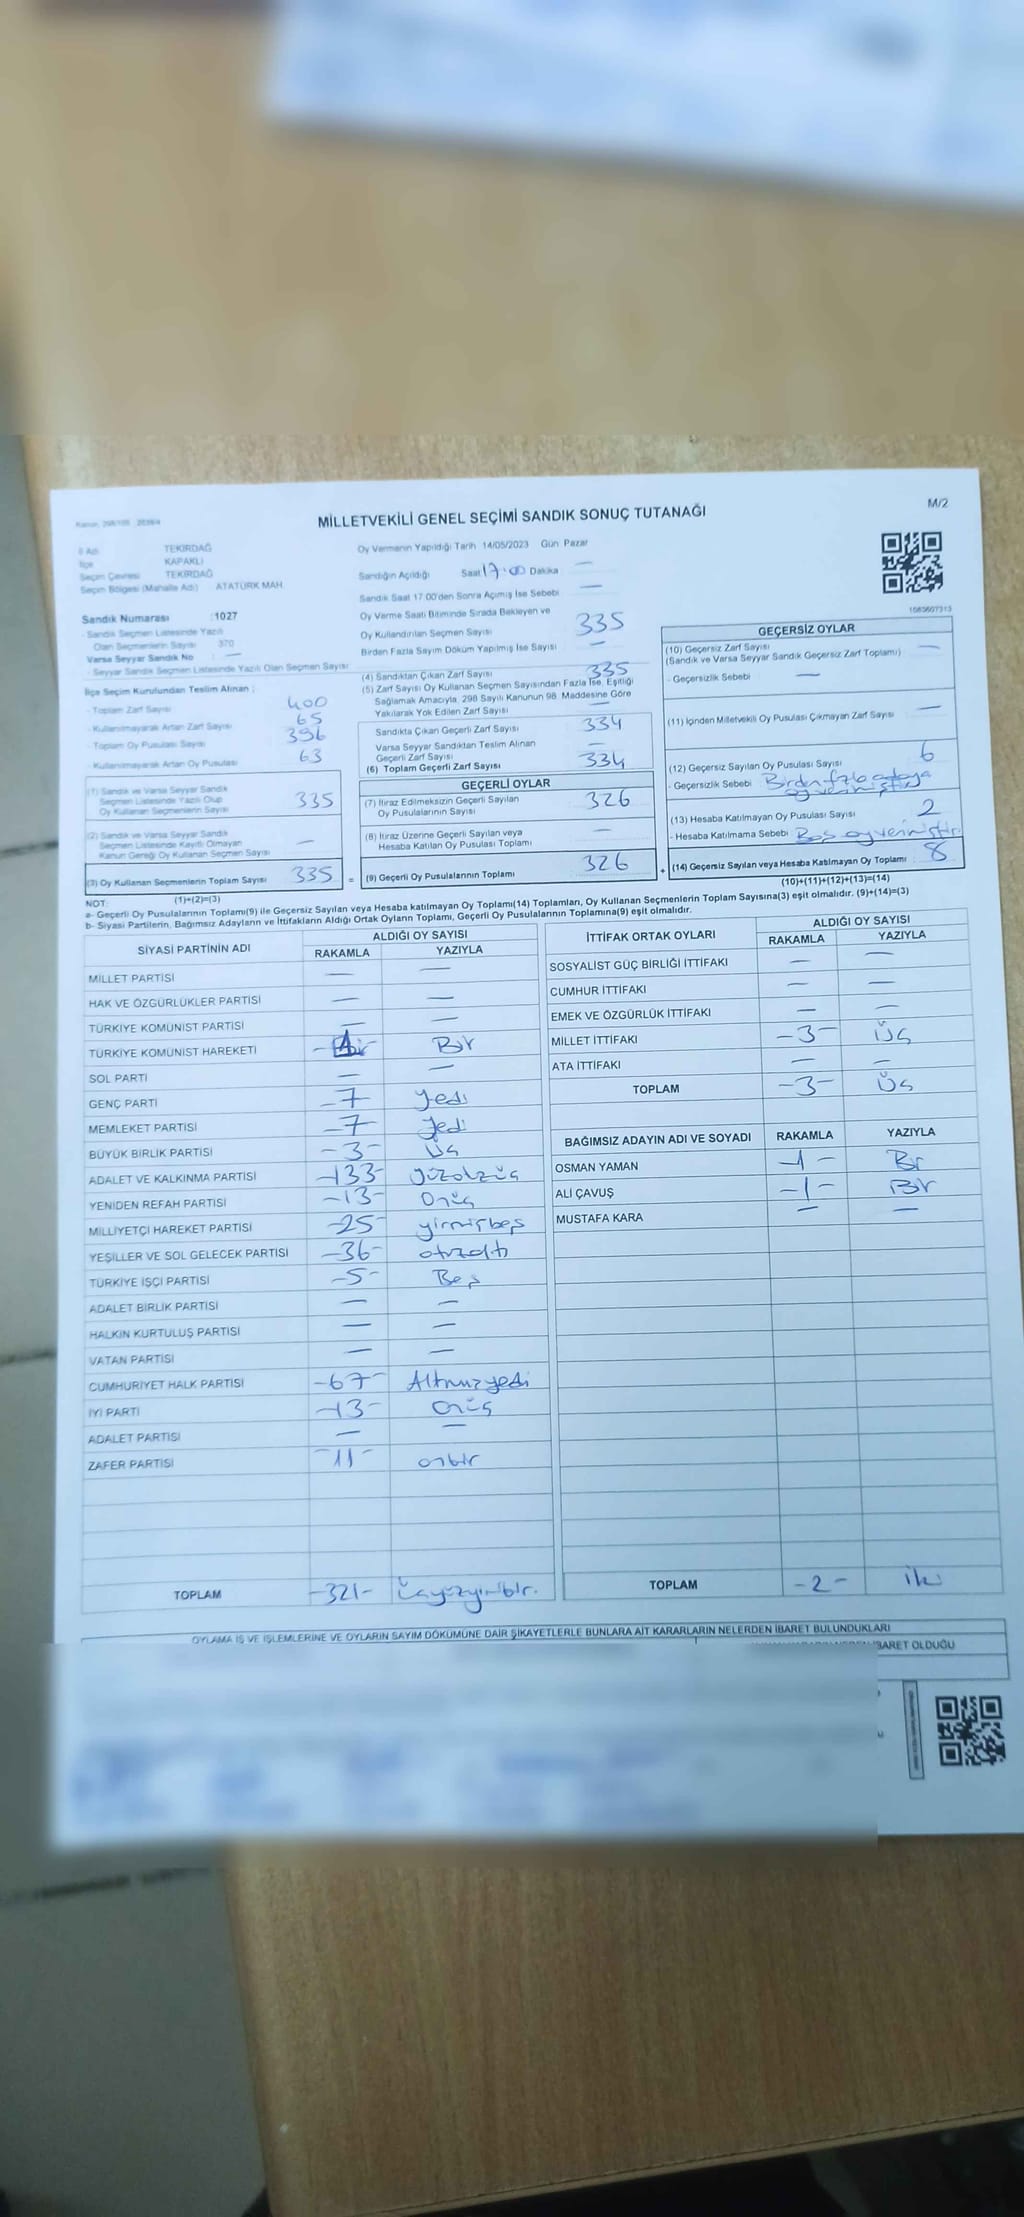 Kanun: 298/105
MİLLETVEKİLİ GENEL SEÇİMİ SANDIK SONUÇ TUTANAĞI
M/2
İl Adı TEKİRDAĞ
İlçe KAPAKLI
Seçim Çevresi TEKİRDAĞ
Seçim Bölgesi (Mahalle Adı) ATATÜRK MAH.
Oy Vermenin Yapıldığı Tarih 14/05/2023 Gün Pazar
Sandığın Açıldığı Saat 17:00 Dakika —
Sandık Saat 17.00'den Sonra Açımış İse Sebebi —
Oy Verme Saati Bitiminde Sırada Bekleyen ve
Oy Kullandırılan Seçmen Sayısı 335
Birden Fazla Sayım Döküm Yapılmış İse Sayısı —
1083607313
Sandık Numarası :1027
- Sandık Seçmen Listesinde Yazılı
Olan Seçmenlerin Sayısı 370
Varsa Seyyar Sandık No : —
- Seyyar Sandık Seçmen Listesinde Yazılı Olan Seçmen Sayısı
İlçe Seçim Kurulundan Teslim Alınan ;
- Toplam Zarf Sayısı 400
- Kullanılmayarak Artan Zarf Sayısı 65
- Toplam Oy Pusulası Sayısı 396
- Kullanılmayarak Artan Oy Pusulası 63
(1) Sandık ve Varsa Seyyar Sandık
Seçmen Listesinde Yazılı Olup
Oy Kullanan Seçmenlerin Sayısı 335
(2) Sandık ve Varsa Seyyar Sandık
Seçmen Listesinde Kayıtlı Olmayan
Kanun Gereği Oy Kullanan Seçmen Sayısı —
(3) Oy Kullanan Seçmenlerin Toplam Sayısı 335 =
(1)+(2)=(3)
(4) Sandıktan Çıkan Zarf Sayısı 335
(5) Zarf Sayısı Oy Kullanan Seçmen Sayısından Fazla İse, Eşitliği
Sağlamak Amacıyla, 298 Sayılı Kanunun 98. Maddesine Göre
Yakılarak Yok Edilen Zarf Sayısı —
Sandıkta Çıkan Geçerli Zarf Sayısı 334
Varsa Seyyar Sandıktan Teslim Alınan
Geçerli Zarf Sayısı —
(6) Toplam Geçerli Zarf Sayısı 334
GEÇERLİ OYLAR
(7) İtiraz Edilmeksizin Geçerli Sayılan
Oy Pusulalarının Sayısı 326
(8) İtiraz Üzerine Geçerli Sayılan veya
Hesaba Katılan Oy Pusulası Toplamı —
(9) Geçerli Oy Pusulalarının Toplamı 326 +
GEÇERSİZ OYLAR
(10) Geçersiz Zarf Sayısı —
(Sandık ve Varsa Seyyar Sandık Geçersiz Zarf Toplamı)
- Geçersizlik Sebebi —
(11) İçinden Milletvekili Oy Pusulası Çıkmayan Zarf Sayısı —
(12) Geçersiz Sayılan Oy Pusulası Sayısı 6
- Geçersizlik Sebebi Birden fazla adaya
oy verilmiştir
(13) Hesaba Katılmayan Oy Pusulası Sayısı 2
- Hesaba Katılmama Sebebi Boş oy verilmiştir.
(14) Geçersiz Sayılan veya Hesaba Katılmayan Oy Toplamı 8
(10)+(11)+(12)+(13)=(14)
NOT:
a- Geçerli Oy Pusulalarının Toplamı(9) ile Geçersiz Sayılan veya Hesaba katılmayan Oy Toplamı(14) Toplamları, Oy Kullanan Seçmenlerin Toplam Sayısına(3) eşit olmalıdır. (9)+(14)=(3)
b- Siyasi Partilerin, Bağımsız Adayların ve İttifakların Aldığı Ortak Oyların Toplamı, Geçerli Oy Pusulalarının Toplamına(9) eşit olmalıdır.
SİYASİ PARTİNİN ADI ALDIĞI OY SAYISI
RAKAMLA YAZIYLA
MİLLET PARTİSİ — —
HAK VE ÖZGÜRLÜKLER PARTİSİ — —
TÜRKİYE KOMÜNİST PARTİSİ — —
TÜRKİYE KOMÜNİST HAREKETİ -1- Bir
SOL PARTİ — —
GENÇ PARTİ -7 Yedi
MEMLEKET PARTİSİ -7 Yedi
BÜYÜK BİRLİK PARTİSİ -3- Üç
ADALET VE KALKINMA PARTİSİ -133- yüzotuzüç
YENİDEN REFAH PARTİSİ -13- Onüç
MİLLİYETÇİ HAREKET PARTİSİ -25- yirmibeş
YEŞİLLER VE SOL GELECEK PARTİSİ -36- otuzaltı
TÜRKİYE İŞÇİ PARTİSİ -5- Beş
ADALET BİRLİK PARTİSİ — —
HALKIN KURTULUŞ PARTİSİ — —
VATAN PARTİSİ — —
CUMHURİYET HALK PARTİSİ -67- Altmışyedi
İYİ PARTİ -13- Onüç
ADALET PARTİSİ — —
ZAFER PARTİSİ -11- onbir
TOPLAM -321- Üçyüzyirmibir.
İTTİFAK ORTAK OYLARI ALDIĞI OY SAYISI
RAKAMLA YAZIYLA
SOSYALİST GÜÇ BİRLİĞİ İTTİFAKI — —
CUMHUR İTTİFAKI — —
EMEK VE ÖZGÜRLÜK İTTİFAKI — —
MİLLET İTTİFAKI -3- Üç
ATA İTTİFAKI — —
TOPLAM -3- Üç
BAĞIMSIZ ADAYIN ADI VE SOYADI RAKAMLA YAZIYLA
OSMAN YAMAN -1- Bir
ALİ ÇAVUŞ -1- Bir
MUSTAFA KARA — —
TOPLAM -2- iki
OYLAMA İŞ VE İŞLEMLERİNE VE OYLARIN SAYIM DÖKÜMÜNE DAİR ŞİKAYETLERLE BUNLARA AİT KARARLARIN NELERDEN İBARET BULUNDUKLARI
İBARET OLDUĞU